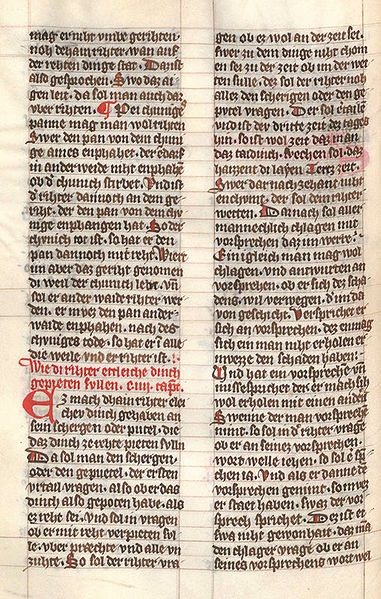 mag er niht vmbe gerihten.
noh dehain rihter wan auf
der rehter dinge stat. Da ist
also gesprochen. Swo daz ai-
gen leit. da sol man auch dar
vber rihten. Pei chuniges
panne mag man wol rihten
Swer den pan von dem chuni-
ge aines enphahet. der endarf
in ander weide niht enphahē
ob d chunich stirbet. Vnd ist
d rihter dannoch an dem ge-
riht. der den pan von dem chu-
nige enphangen hat. So der
chunich tot ist. so hat er den
pan dannoch mit reht. Wirt
im aber daz geriht genomen
di weil der chunich lebt. vn
sol er ander waide rihter wer-
den. er mvez den pan ander-
waide enphahen. nach des
chuniges tode. so hat er in alle
die weile vnd er rihter ist.
Wie di rihter etleiche dinch
gepieten svllen. c iiij. capt.
Ez mach dhain rihter elei-
chev dinch gehaben an
sein schergen oder putel. die
daz dinch ze rehte pieten svlln
Da sol man den schergen.
oder den gepuetel. der ersten
vrtail vragen. also ob er daz
dinch also gepoten habe. als
ez reht sei. Vnd sol in vragen
ob er mit reht verpieten sol
le. vber praechte vnd alle vn
zuhte. So sol der rihter vra-
gen ob ez wol an der zeit sei.
Swer zu dem dinge niht chom
en sei zu der zeit ob im der wet
ten sulle. dez sol der rihter noh
allez den schergen oder den ge-
putel vragen. Der sol ertaile
vnd ist der dritte zeit des tages
hin. so ist wol zeit daz man
daz taidinch. Svechen sol. daz
haizzent di layen Tertz zeit.
Swer dar nach ze hant niht
enchumt. der sol dem rihter
wetten. Darnach sol aller
mannechlich chlagen mit
vorsprechen daz im werre.
Ein igleich man mag wol
chlagen. vnd antwurten an
vorsprechen. ob er sich dez scha-
dens. wil verwegen. d im da
von geschiht. Verspricht er
sich an vorsprechen. dez enmag
sich im man niht erholen er
mveze den schaden haben.
Vnd hat ein vorspreche vn
misse sprichet der er mach sih
wol erholen mit einen andern
Swenne der man vorsprechen
nimt. so sol in d rihter vrage
ob er an seinez vorsprechen.
wort welle iehen. so sol e spre
chen ia. Vnd als er danne de
vorsprechen genimt. so mvez
er staet haben. swaz der vor
sprech sprichet. Dez ist et
swa niht gewonhait. daz man
den chlager vrage ob er an
seines vorsprechens wort wel